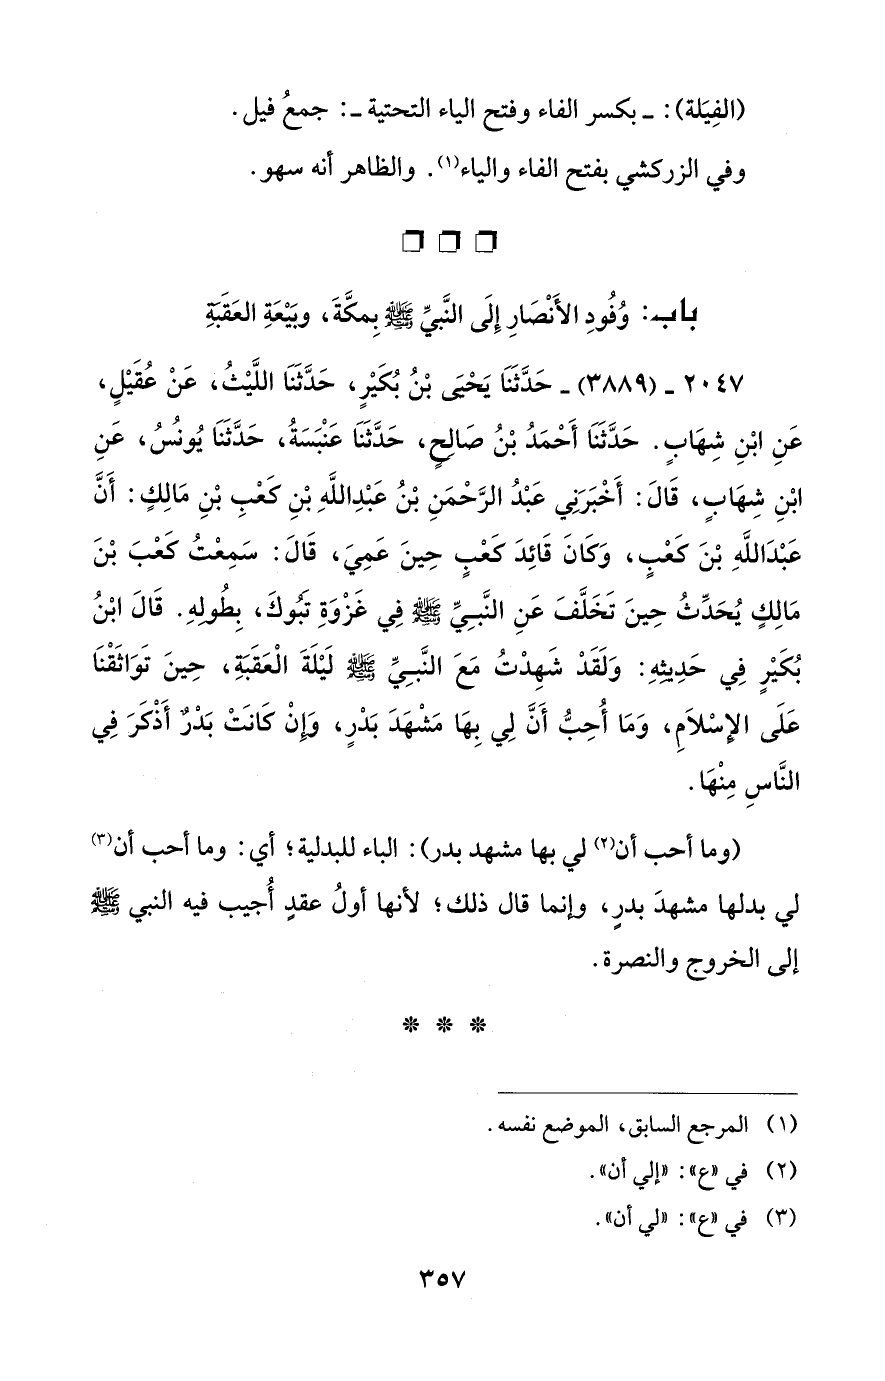 (الفِيَلة): ـ بكسر الفاء وفتح الياء التحتية ـ: جمعُ فيل.
وفي الزركشي بفتح الفاء والياء(١). والظاهر أنه سهو.
باب: وُفُودِ الأَنْصَارِ إِلَى النَّبِيِّ ﷺ بِمكَّةَ، وبَيْعَةِ العَقَبَةِ
٢٠٤٧ ـ (٣٨٨٩) ـ حَدَّثَنَا يَحْيَى بْنُ بُكَيْرٍ، حَدَّثَنَا اللَّيْثُ، عَنْ عُقَيْلٍ،
عَنِ ابْنِ شِهَابٍ. حَدَّثَنَا أَحْمَدُ بْنُ صَالِحٍ، حَدَّثَنَا عَنْبَسَةُ، حَدَّثَنَا يُونُسُ، عَنِ
ابْنِ شِهَابٍ، قَالَ: أَخْبَرَنِي عَبْدُ الرَّحْمَنِ بْنُ عَبْدِاللَّهِ بْنِ كَعْبِ بْنِ مَالِكٍ: أَنَّ
عَبْدَاللَّهِ بْنَ كَعْبٍ، وَكَانَ قَائِدَ كَعْبٍ حِينَ عَمِيَ، قَالَ: سَمِعْتُ كَعْبَ بْنَ
مَالِكٍ يُحَدِّثُ حِينَ تَخَلَّفَ عَنِ النَّبِيِّ ﷺ فِي غَزْوَةِ تَبُوكَ، بِطُولِهِ. قَالَ ابْنُ
بُكَيْرٍ فِي حَدِيثِهِ: وَلَقَدْ شَهِدْتُ مَعَ النَّبِيِّ ﷺ لَيْلَةَ الْعَقَبَةِ، حِينَ تَوَاثَقْنَا
عَلَى الإِسْلاَمِ، وَمَا أُحِبُّ أَنَّ لِي بِهَا مَشْهَدَ بَدْرٍ، وَإِنْ كَانَتْ بَدْرٌ أَذْكَرَ فِي
النَّاسِ مِنْهَا.
(وما أحب أن(٢) لي بها مشهد بدر): الباء للبدلية؛ أي: وما أحب أن(٣)
لي بدلها مشهدَ بدرٍ، وإنما قال ذلك؛ لأنها أولُ عقدٍ أُجيب فيه النبي ﷺ
إلى الخروج والنصرة.
* * *
(١) المرجع السابق، الموضع نفسه.
(٢) في «ع»: «إلي أن».
(٣) في «ع»: «لي أن».
٣٥٧